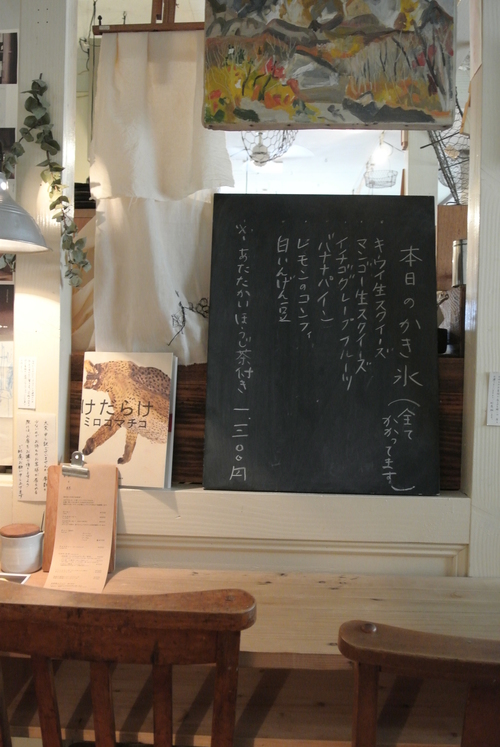 本日のかき氷(全てかかってます。)
キウイ生スクイーズ
マンゴー生スクイーズ
イチゴグレープフルーツ
バナナパイン
レモンのコンフィ
白いんげん豆
※あたたかいほうじ茶付き 一三〇〇円
けだらけ
ミロコマチコ